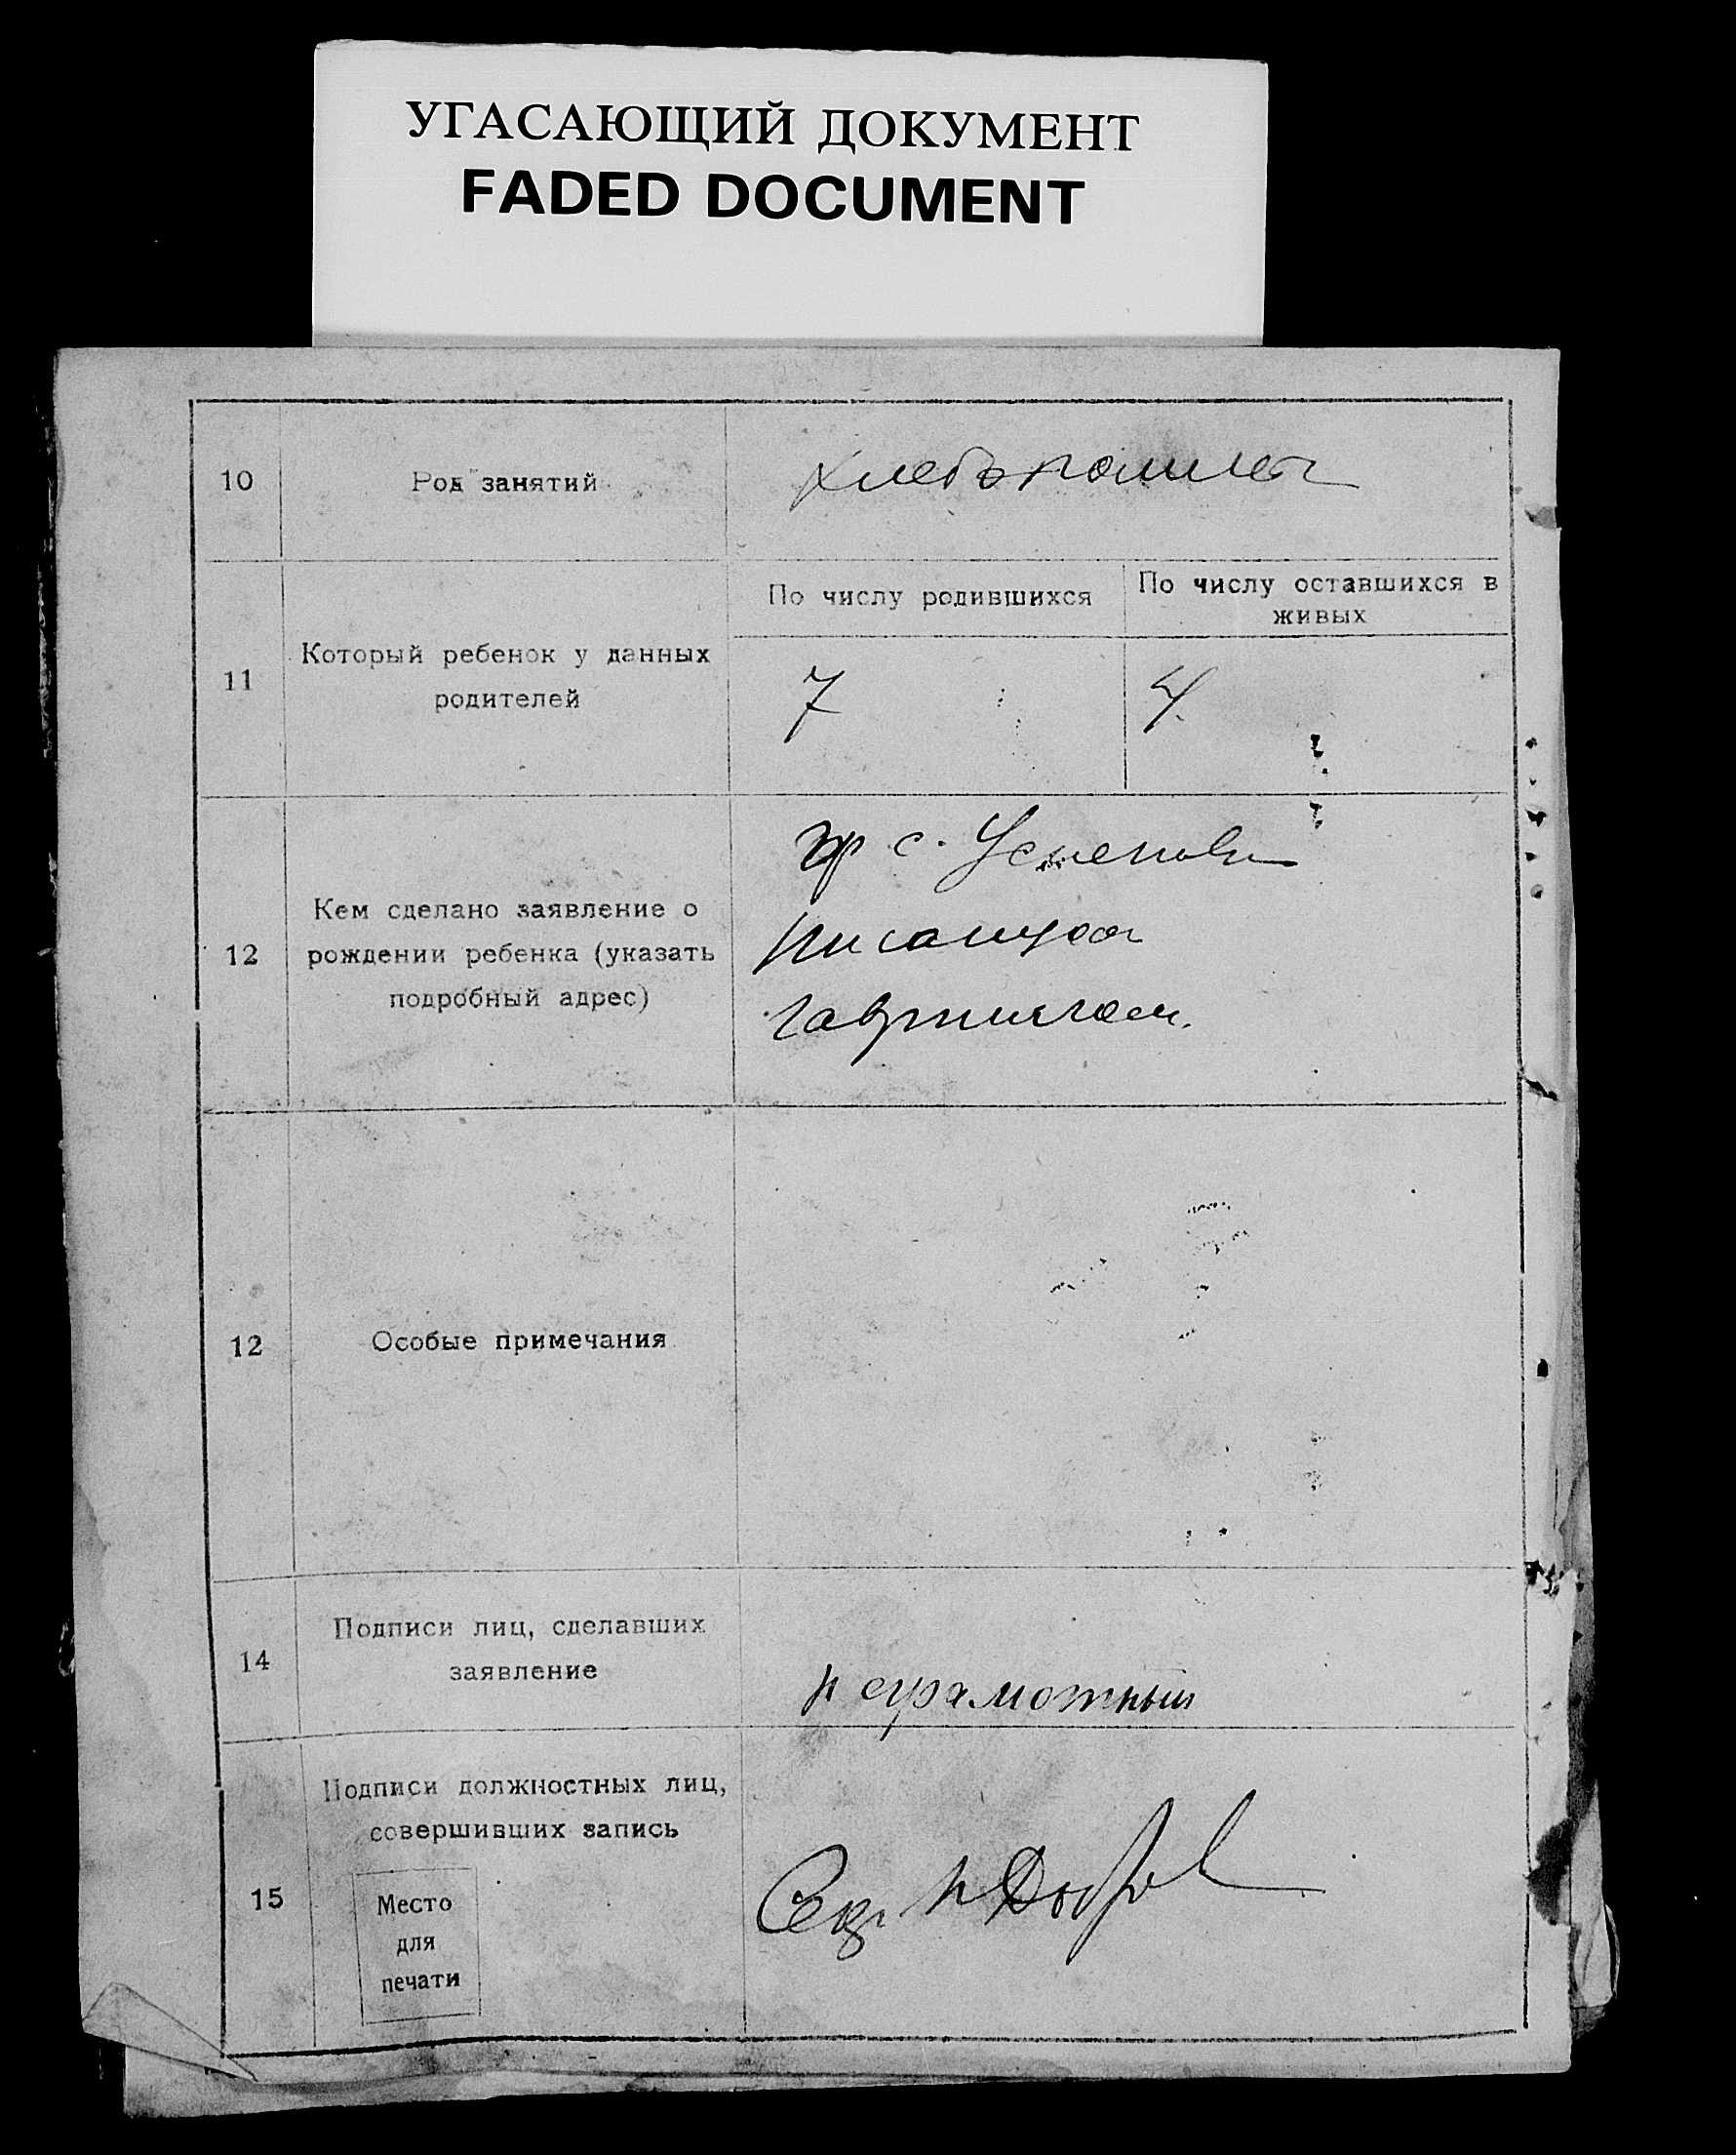 УГАСАЮЩИЙ ДОКУМЕНТ
FADED DOCUMENT
10
Род занятий
хлебопашест
11
Который ребенок у данных
родителей
По числу родившихся
По числу оставшихся в
живых
7
4.
12
Кем сделано заявление о
рождении ребенка (указать
подробный адрес)
гр с.
12
Особые примечания
14
Подписи лиц, сделавших
заявление
неграмотный
15
Подписи должностных лиц,
совершивших запись
Место
для
печати